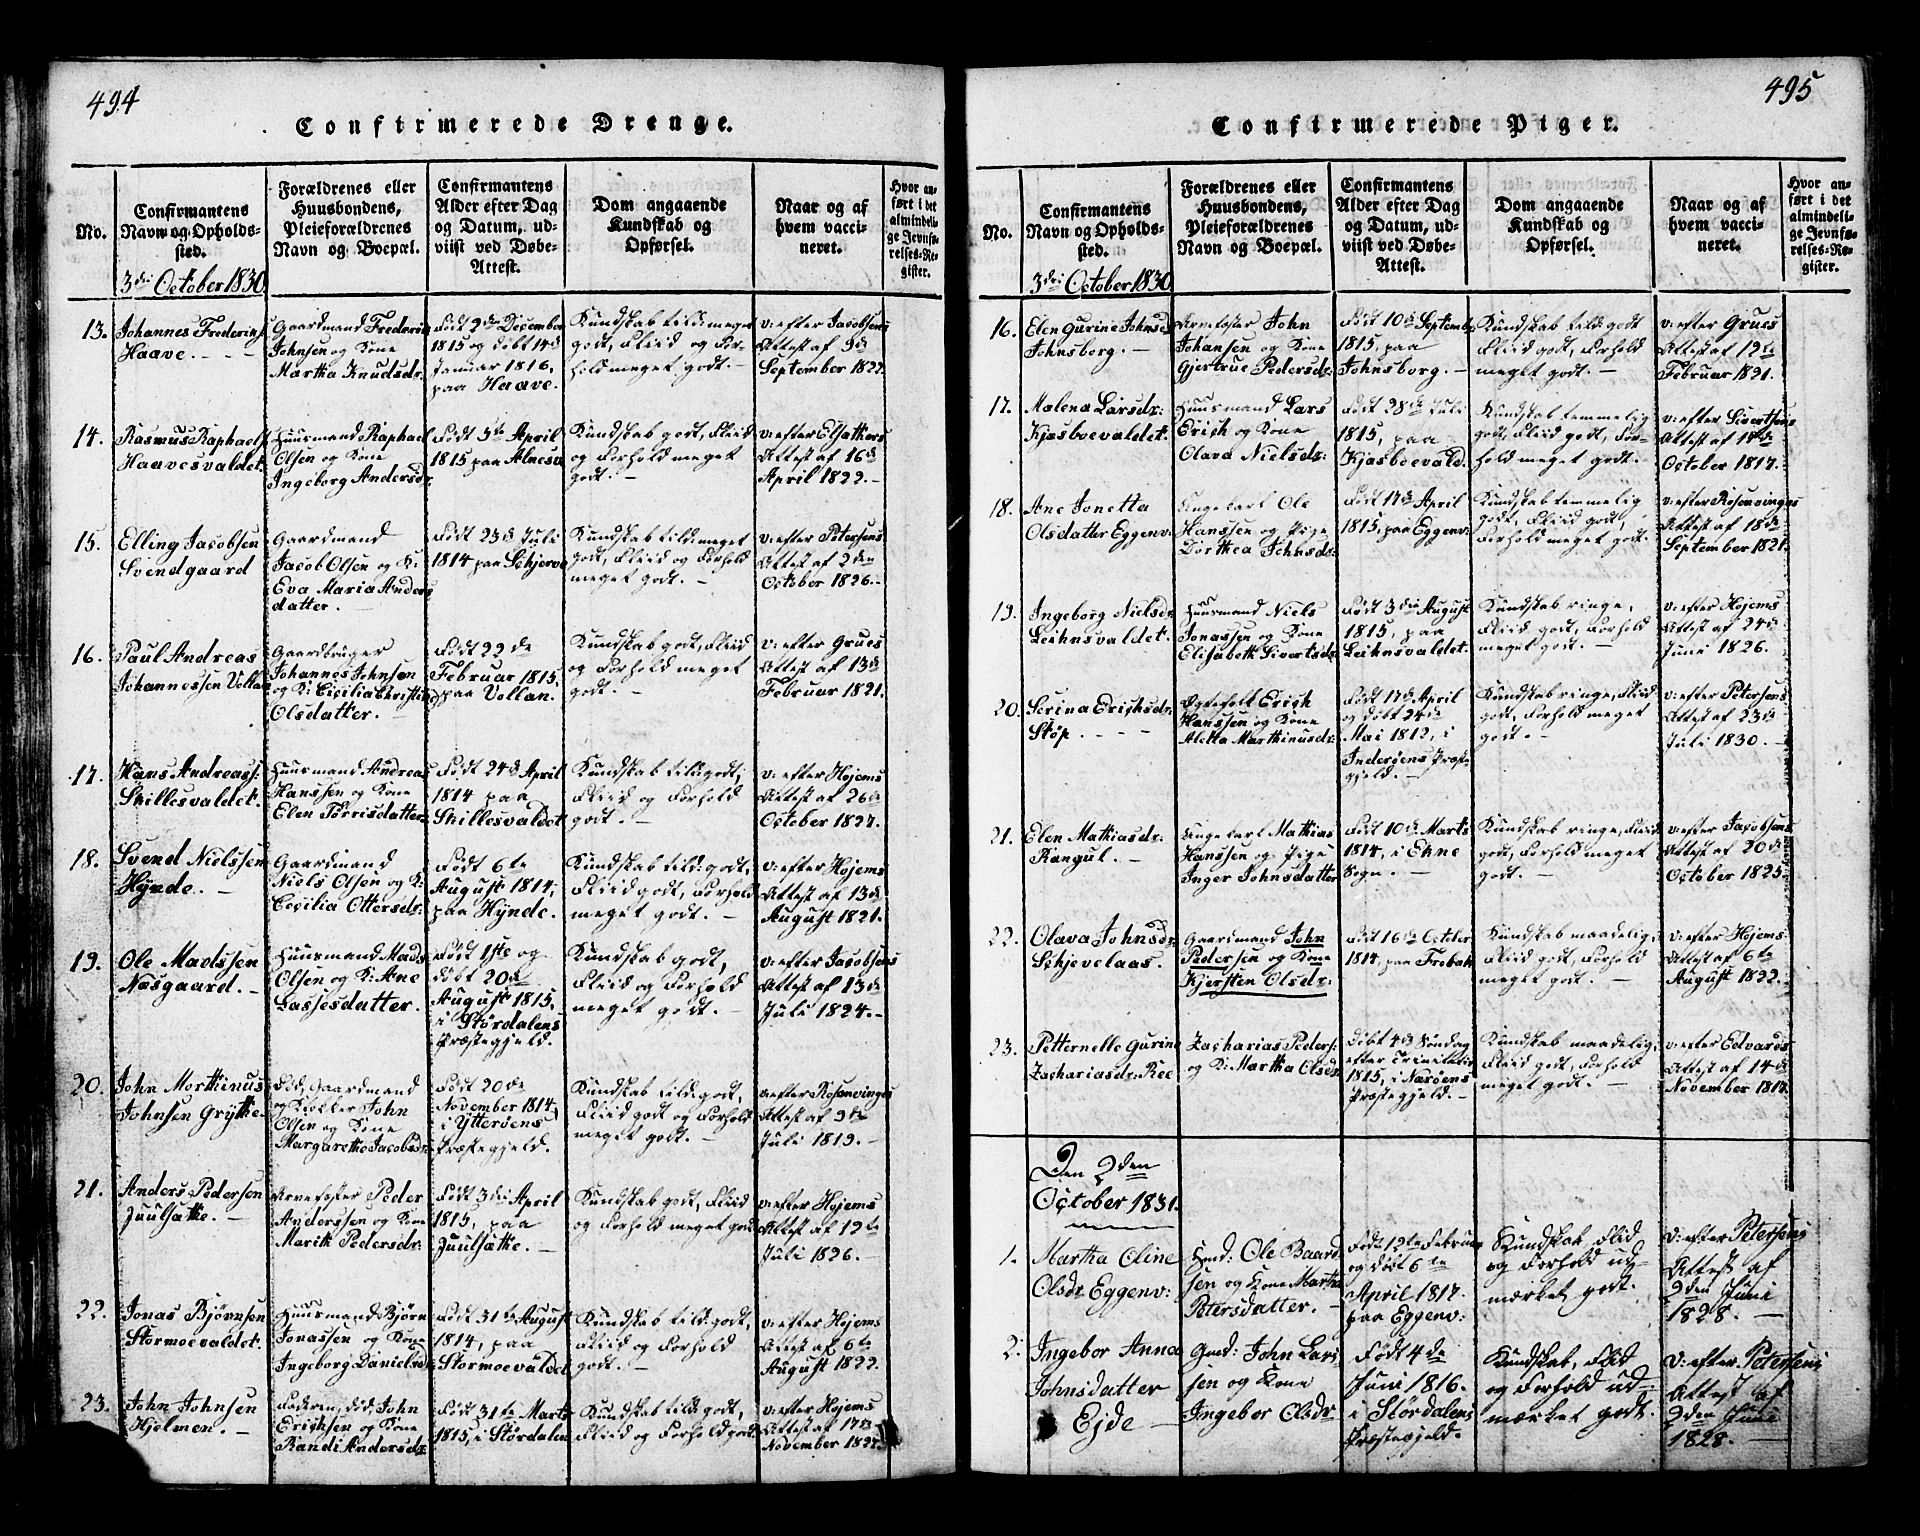 494
Confirmerede Drenge.
No.
Confirmantens
Navn og Opholds-
sted.
3die October 1830
Forældrenes eller
Huusbondens,
Pleieforældrenes
Navn og Boepæl.
Confirmantens
Alder efter Dag
og Datum, ud-
viist ved Døbe-
Attest.
Dom angaaende
Kundskab og
Opførsel.
Naar og af
hvem vacci-
neret.
Hvor an-
ført i det
almindeli-
ge Jevnfø-
relses-Re-
gister.
13.
Johannes Frederiks:
Haave.
Gaardmand Frederik
Johnsen og Kone
Martha Knudsdr:
Født 9de December
1815 og døbt 14de
Januar 1816,
paa Haave.
Kundskab tild: meget
godt, Fliid og For-
hold meget godt.
v: efter Jacobsens
Attest af 9de
September 1822.
14.
Rasmus Raphaels:
Haavesvaldet.
Huusmand Raphael
Olsen og Kone
Ingeborg Andersdr:
Født 5te April
1815 paa Alnesv:
Kundskab godt, Fliid
og Forhold meget
godt.
v: efter
Attest af 16de
April 1822.
15.
Elling Jacobsen
Svendgaard
Gaardmand
Jacob Olsen og K:
Eva Maria Anders
datter.
Født 23de Juli
1814 paa Schjerve
Kundskab tild: meget
godt, Fliid og Forhold
meget godt.
v: efter Petersens
Attest af 2den
October 1826.
16.
Paul Andreas
Johannessen Vollan
Gaardbruger
Johannes Johnsen
og K: Cecilia Christin
Olsdatter.
Født 22de
Februar 1815.
paa Vollan.
Kundskab godt, Fliid
og Forhold meget
godt.
v: efter Grues
Attest af 13de
Februar 1821.
17.
Hans Andreass:
Skillesvaldet.
Huusmand Andreas
Hanssen og Kone
Elen Tørrisdatter
Født 24de April
1814 paa
Skillesvaldet
Kundskab tild: godt,
Fliid og Forhold
godt.
v: efter Højems
Attest af 26de
October 1827.
18.
Svend Nielssen
Hÿnde.
Gaardmand
Niels Olsen og K:
Cecilia Ottersdr:
Født 6te
August 1814,
paa Hÿnde.
Kundskab tild: godt,
Fliid godt, Forhold
meget godt.
v: efter Højems
Attest af 13de
August 1821.
19.
Ole Madssen
Næsgaard.
Huusmand Mads
Olsen og K: Ane
Lassesdatter.
Født 1ste og
døbt 20de
August 1815,
i Størdalens
Præstegjeld.
Kundskab godt,
Fliid og Forhold
meget godt.
v: efter Jacobsens
Attest af 13de
Juli 1824.
20.
John Morthinus
Johnsen Grÿtte.
Død, Gaardmand
og Klokker John
Olsen og Kone
Margarethe Jacobsdr:
Født 20de
November 1814
i Ytterøens
Præstegjeld.
Kundskab tild: godt,
Fliid godt og Forhold
meget godt.
v: efter Rosenvinges
Attest af 9de
Juli 1819.
21.
Anders Pedersen
Juulsatke.
Peder
Anderssen og Kone
Marit Pedersdr:
Født 3die April
1815, paa
Juulsatke.
Kundskab godt, Fliid
og Forhold meget godt
v: efter Højems
Attest af 12te
Juli 1826.
22.
Jonas Bjørnsen
Stormoevaldet.
Huusmand Bjørn
Jonassen og Kone
Ingeborg Danielsd:
Født 31te August
1814, paa
Stormoevaldet
Kundskab tild: godt,
Fliid og Forhold
godt.
v: efter Højems
Attest af 6te
August 1822.
23.
John Johnsen
Hjelmen.
død John
Ericksen og Kone
Randi Andersdr:
Født 31te Marts
1815, i Størdalen
Kundskab tild: godt,
Fliid og Forhold godt
v: efter Højems
Attest af 17de
November 1827.
495
Confirmerede Piger.
No.
Confirmantens
Navn og Opholds-
sted.
3die October 1830
Forældrenes eller
Huusbondens,
Pleieforældrenes
Navn og Boepæl.
Confirmantens
Alder efter Dag
og Datum, ud-
viist ved Døbe-
Attest.
Dom angaaende
Kundskab og
Opførsel.
Naar og af
hvem vacci-
neret.
Hvor an-
ført i det
almindeli-
ge Jevnfø-
relses-Re-
gister.
16.
Elen Gurine Johnsd:
Johnsborg.
John
Johansen og Kone
Gjertrue Pedersdr:
Født 10de Septembr
1815, paa
Johnsborg.
Kundskab tild: godt
Fliid godt, Forhold
meget godt.
v: efter Grues
Attest af 12te
Februar 1821.
17.
Malena Larsdr:
Kjasboevaldet.
Huusmand Lars
Erich og Kone
Olava Nielsdr:
Født 28de Juli
1815, paa
Kjasboevald.
Kundskab temmelig
godt, Fliid godt, For-
hold meget godt.
v: efter Sivertsens
Attest af
October 1817.
18.
Ane Jonetta
Olsdatter Eggenv:
Ungekarl Ole
Hanssen og Pige
Dorthea Johnsdr:
Født 17de April
1815, paa Eggenv:
Kundskab temmelig
godt, Fliid godt,
Forhold meget godt.
v: efter Rosenvinges
Attest af 18de
September 1821.
19.
Ingeborg Nielsdr:
Leihnsvaldet.
Huusmand Niels
Jonassen og Kone
Elisabeth Sivertsdr:
Født 3die August
1815, paa
Leihnsvaldet.
Kundskab ringe,
Fliid godt, Forhold
meget godt.
v: efter Højems
Attest af 24de
Juni 1826.
20.
Serina Erichsdr:
Støp.
Ægtefolk Erich
Hanssen og Kone
Aletta Marthinusdr:
Født 17de April
og døbt 24de
Mai 1812, i
Inderøens Præste
gjeld.
Kundskab ringe, Fliid
godt, Forhold meget
godt.
v: efter Petersens
Attest af 23de
Juli 1830.
21.
Elen Mathiasdr:
Rangul.
Ungekarl Mathias
Hanssen og Pige
Inger Johnsdatter
Født 10de Marts
1814, i Ekne
Sogn.
Kundskab ringe, Fliid
godt, Forhold meget
godt.
v: efter Jacobsens
Attest af 20de
October 1825.
22.
Olava Johnsdr:
Schjevelaas.
Gaardmand John
Pedersen og Kone
Kjersten Olsdr:
Født 16de October
1814, paa Frebak
Kundskab maadelig,
Fliid godt, Forhold
meget godt.
v: efter Højems
Attest af 6te
August 1822.
23.
Petternelle Gurine
Zachariasdr: Ree
Zacharias Peders:
og K: Martha Olsdr:
Døbt 4de Søndag
efter Trinitatis
1815, i Nærøens
Præstegjeld.
Kundskab maadelig,
Fliid godt, Forhold
meget godt.
v: efter Edvards
Attest af 14de
November 1817.
Den 2den
October 1831.
1.
Martha Oline
Olsdr Eggenv:
Hmd: Ole Baard
sen og Kone Martha
Petersdatter.
Født 12te Februar
og døbt 6te
April 1817.
paa Eggenv:
Kundskab, Flid
og Forhold ud-
mærket godt.
v: efter Petersens
Attest af
2den Juni
1828.
2.
Ingebor Anna
Johnsdatter
Ejde
Gmd: John Lars
sen og Kone
Ingebor Olsdr
Født 4de
Juni 1816.
i Størdalens
Præstegjeld.
Kundskab, Flid
og Forhold ud-
mærket godt.
v: efter Petersens
Attest af
2den Juni
1828.